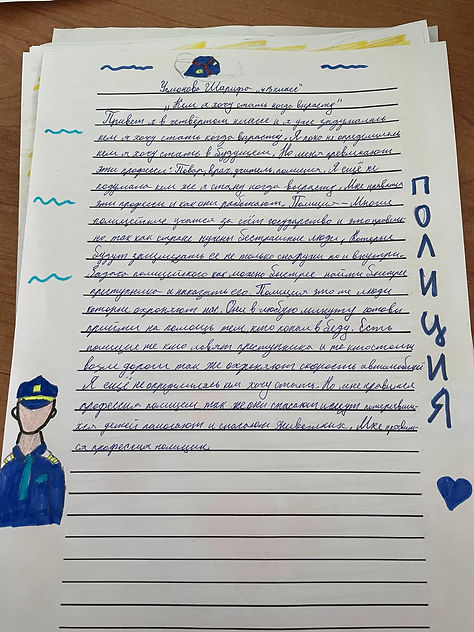 Усмонова Шарифа "4в класс"
"Кем я хочу стать когда вырасту"
Привет я в четвёртом классе и я уже задумалась
кем я хочу стать когда вырасту. Я пока не определилась
кем я хочу стать в будущем. Но меня привлекают
эти професси: Повар, врач, учитель, полиция. Я ещё не
подумала кем же я стану когда вырасту. Мне
эти професси и как они работают. Полиция – Многие
полицейские учатся за счёт государство и это
но, так как стране нужны бесстрашные люди, которые
будут защищать её не только снаружи но и внутри.
Задача полицейского как можно быстрее найти
преступника и наказать его. Полиция это те люди
которые охраняют нас. Они в любую минуту готовы
прийти на помощь тем кто попал в беду. Есть
полицие те кто ловят преступника и те кто стоит
возле дороги так же скорость автомобилей
Я ещё не определилась кем хочу стать. Но мне нравится
профессия полицеи так же они спасают ищут
детей помогают и спасают животных. Мне
ся профессия полицеи.
ПОЛИЦИЯ